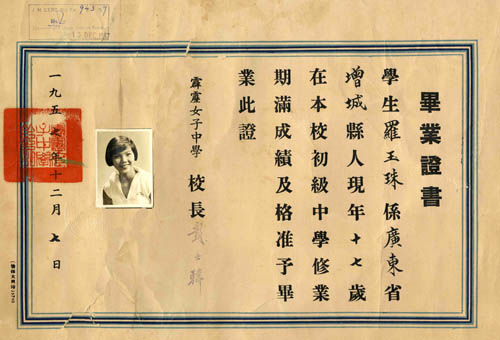 畢業證書
學生羅玉珠係廣東省
增城縣人現年十七歲
在本校初級中學修業
期滿成績及格准予畢
業此證
霹靂女子中學 校長
一九五七年十二月七日